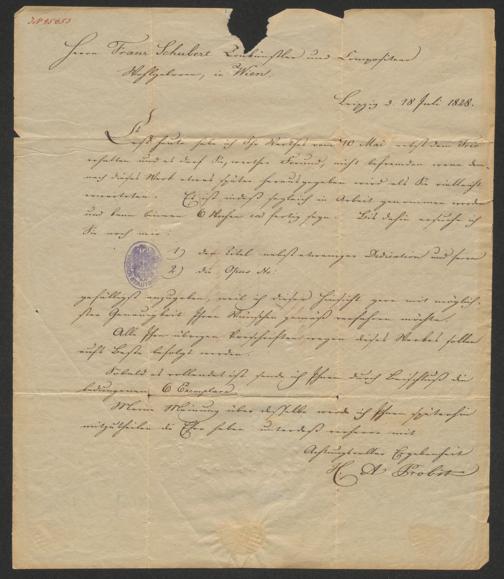 Herrn Franz Schubert Tonkünstler und Compositeur
Wohlgeboren, in Wien.
Leipzig d 18 Juli 1828.
Erst heute habe ich Ihr Werthes vom 10 Mai nebst dem Trio
erhalten und es darf Sie, werther Freund, nicht befremden wenn dem-
nach dieses Werk etwas später herausgegeben wird als Sie vielleicht
erwarteten. Es ist indeß sogleich in Arbeit genommen worden
und kann binnen 6 Wochen ca fertig seyn. Bis dahin ersuche ich
Sie noch mir:
1) den Titel nebst etwaniger Dedication und ferner
2) die Opus No:
gefälligst anzugeben, weil ich in dieser Hinsicht gern mit möglich-
ster Genauigkeit Ihren Wünschen gemäß verfahren möchte.
Alle Ihre übrigen Vorschriften wegen dieses Werkes sollen
aufs Beste befolgt werden.
Sobald es vollendet ist sende ich Ihnen durch Beischluß die
bedungenen 6 Exemplare.
Meine Meinung über dasselbe werde ich Ihnen späterhin
mitzutheilen die Ehre haben unterdeß verharre mit
Achtungsvoller Ergebenheit
H. A Probst